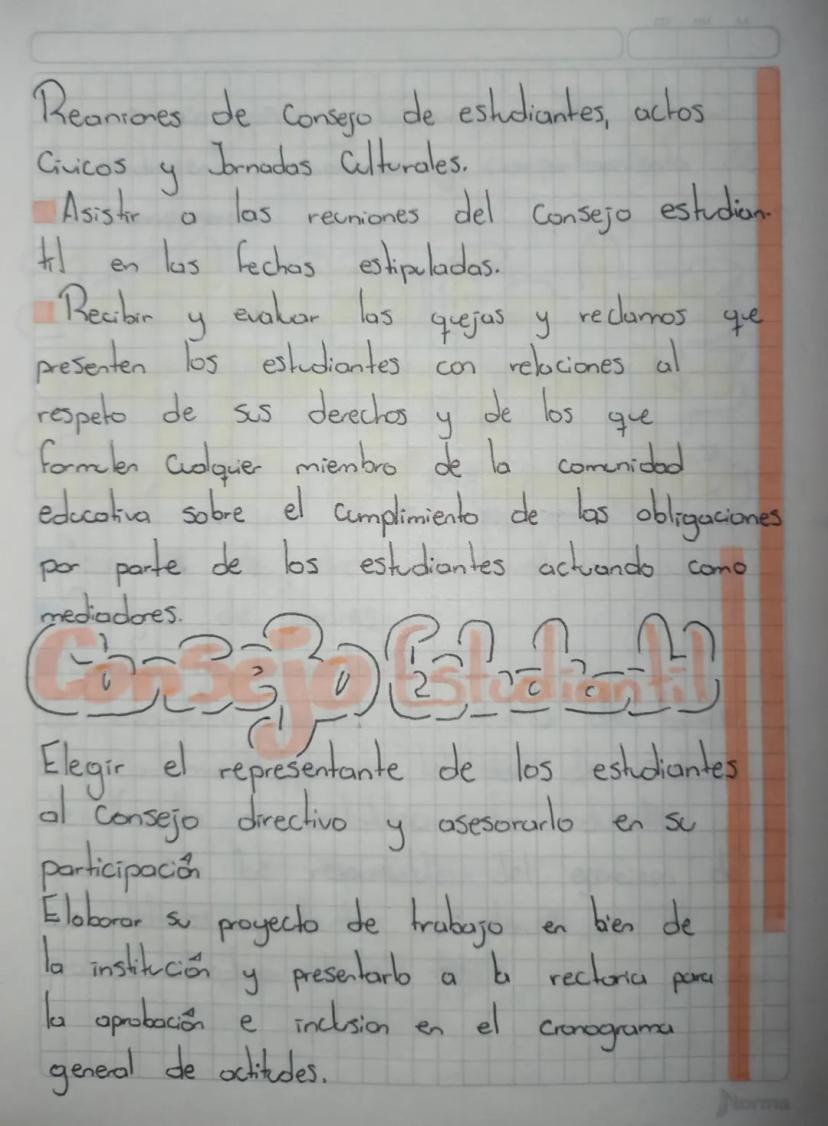 Reaniones de Consejo de estudiantes, actos
Civicos y Jornadas Culturales.
Asistir a las reuniones del Consejo estudian-
til en las fechas estipuladas.
Recibir y evaluar las quejas y reclamos que
presenten los estudiantes con relaciones al
respeto de sus derechos y de los que
formulen Cualquier miembro de la comunidad
educativa sobre el cumplimiento de las obligaciones
por parte de los estudiantes actuando como
mediadores.
Consejo Estudiantil
Elegir el representante de los estudiantes
al Consejo directivo y asesorarlo en su
participación
Elaborar su proyecto de trabajo en bien de
la institución y presentarlo a la rectoria para
la aprobación e inclusion en el cronograma
general de actitudes.
Norma